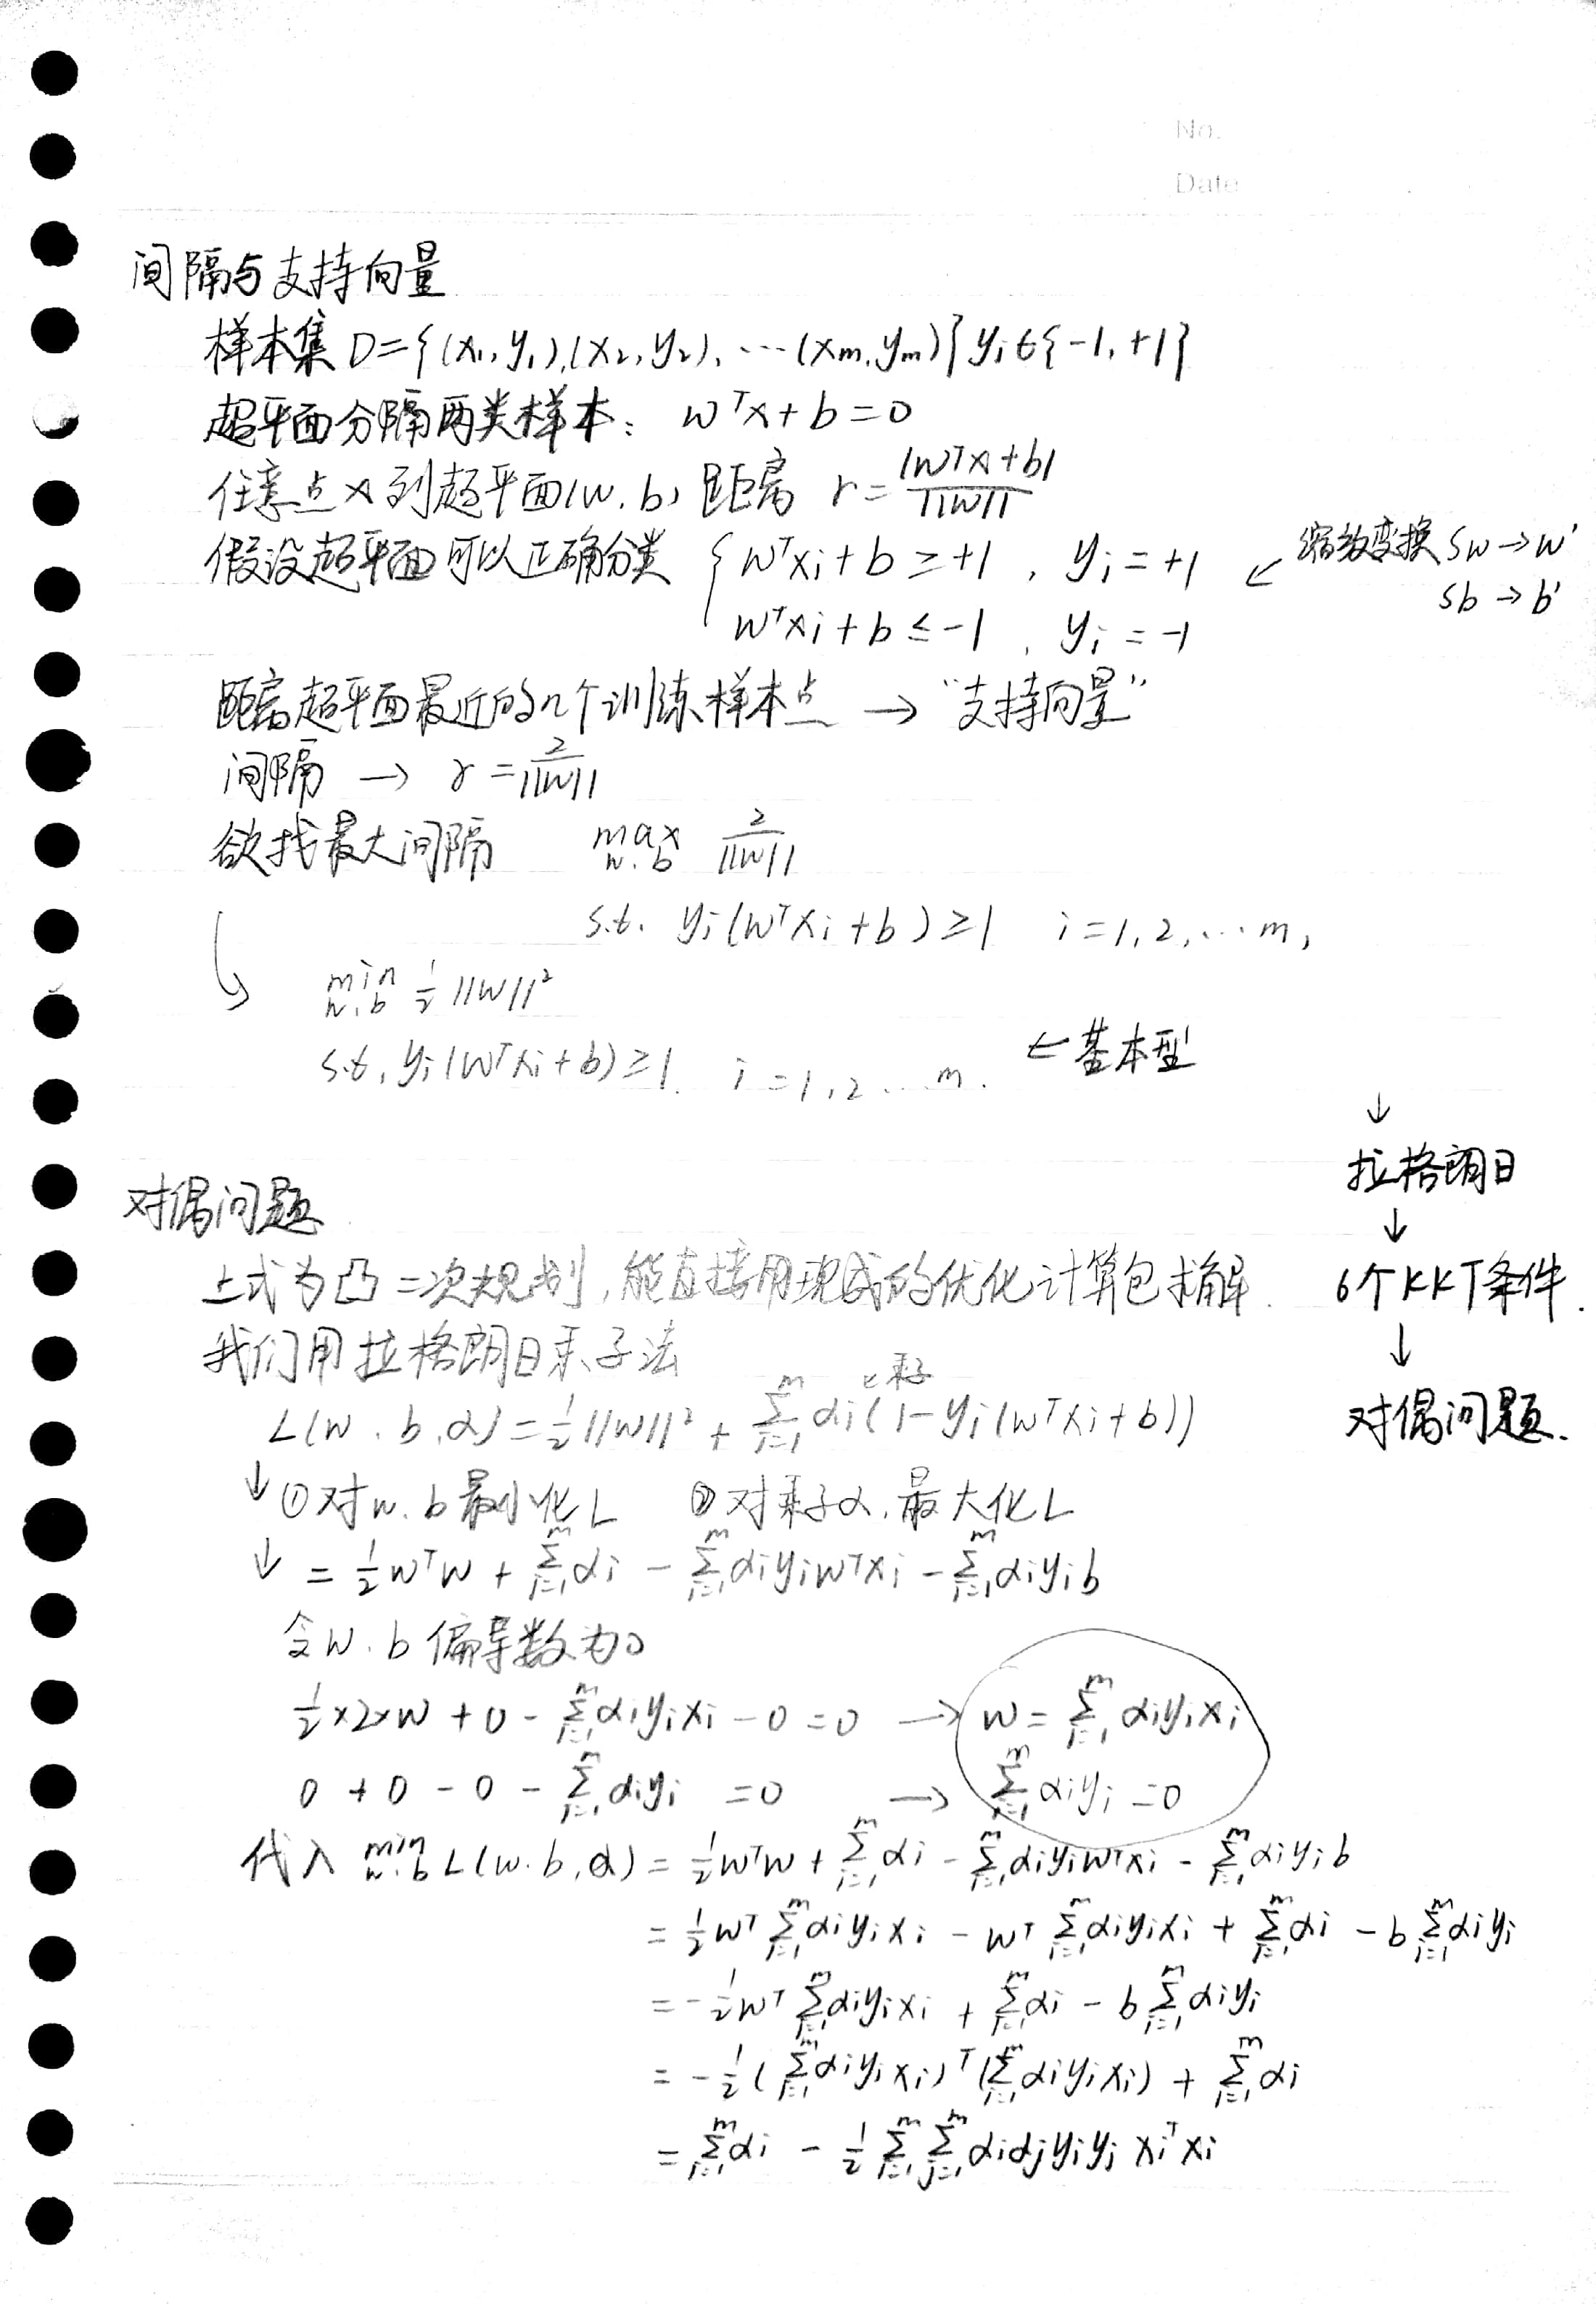 No.
Date
间隔与支持向量
样本集 D={(x₁,y₁),(x₂,y₂),…(xm,ym)} yi∈{-1,+1}
超平面分隔两类样本: wᵀx+b=0
任意点x到超平面(w,b)距离 r=|wᵀx+b|/||w||
假设超平面可以正确分类 { wᵀxi+b≥+1, yi=+1 ← 缩放变换 sw→w'
wᵀxi+b≤-1, yi=-1 sb→b'
距离超平面最近的几个训练样本点 → "支持向量"
间隔 → γ=2/||w||
欲找最大间隔 max w,b 2/||w||
s.t. yi(wᵀxi+b)≥1 i=1,2,…m,
min w,b ½||w||²
s.t. yi(wᵀxi+b)≥1. i=1,2…m. ←基本型
↓
拉格朗日
↓
6个KKT条件.
↓
对偶问题.
对偶问题
上式为凸二次规划,能直接用现成的优化计算包求解.
我们用拉格朗日乘子法
L(w,b,α)=½||w||²+∑ᵢ₌₁ᵐ αi(1-yi(wᵀxi+b))
↙乘子
↓ ①对w,b最小化L ②对乘子α,最大化L
↓ =½wᵀw+∑ᵢ₌₁ᵐ αi-∑ᵢ₌₁ᵐ αiyiwᵀxi-∑ᵢ₌₁ᵐ αiyib
令w,b偏导数为0
½×2×w+0-∑ᵢ₌₁ᵐ αiyixi-0=0 → w=∑ᵢ₌₁ᵐ αiyixi
0+0-0-∑ᵢ₌₁ᵐ αiyi=0 → ∑ᵢ₌₁ᵐ αiyi=0
代入 min w,b L(w,b,α)=½wᵀw+∑ᵢ₌₁ᵐ αi-∑ᵢ₌₁ᵐ αiyiwᵀxi-∑ᵢ₌₁ᵐ αiyib
=½wᵀ∑ᵢ₌₁ᵐ αiyixi-wᵀ∑ᵢ₌₁ᵐ αiyixi+∑ᵢ₌₁ᵐ αi-b∑ᵢ₌₁ᵐ αiyi
=-½wᵀ∑ᵢ₌₁ᵐ αiyixi+∑ᵢ₌₁ᵐ αi-b∑ᵢ₌₁ᵐ αiyi
=-½(∑ᵢ₌₁ᵐ αiyixi)ᵀ(∑ᵢ₌₁ᵐ αiyixi)+∑ᵢ₌₁ᵐ αi
=∑ᵢ₌₁ᵐ αi-½∑ᵢ₌₁ᵐ∑ⱼ₌₁ᵐ αiαjyiyjxiᵀxi